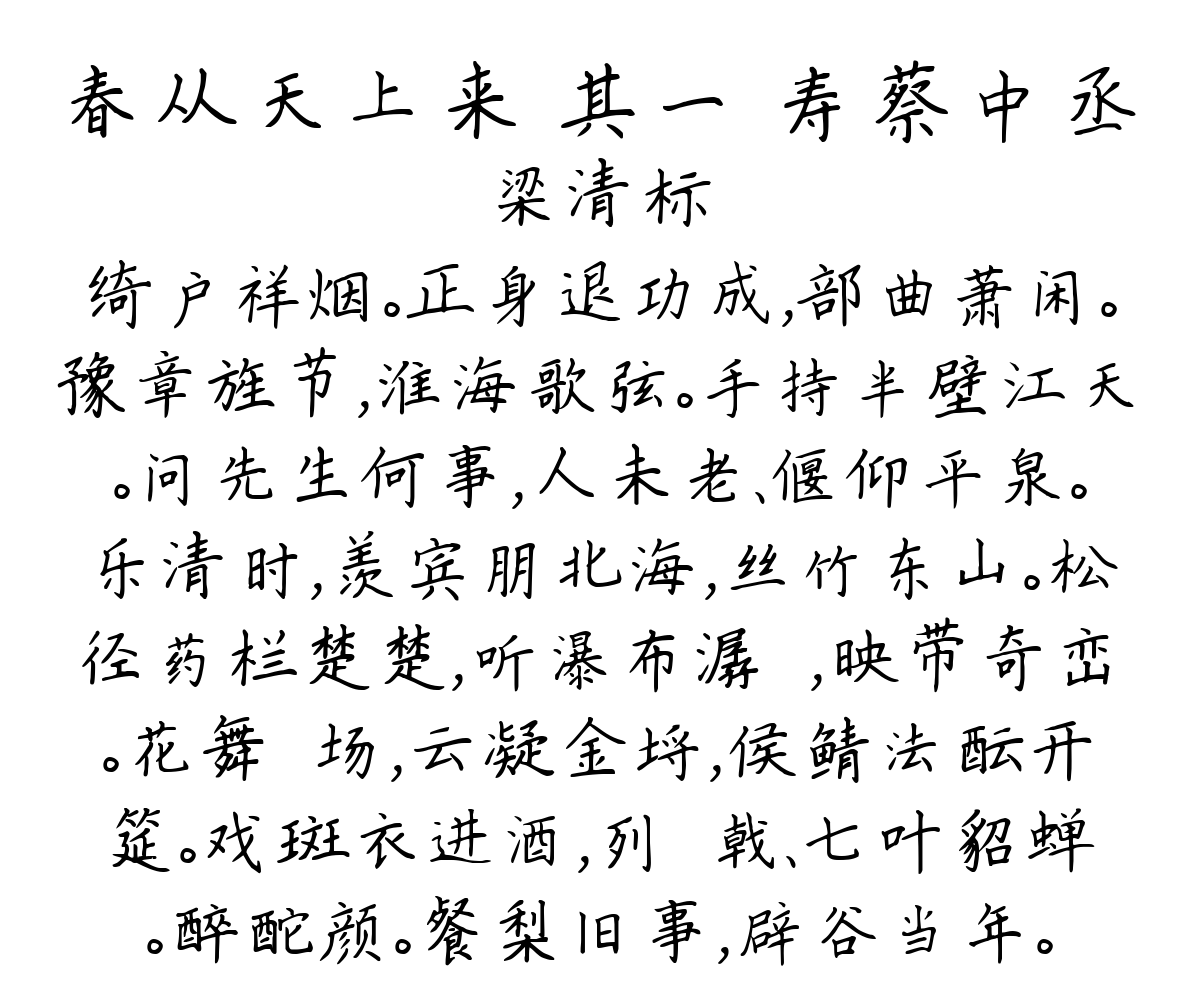 春从天上来 其一 寿蔡中丞
梁清标
绮户祥烟。正身退功成,部曲萧闲。
豫章旌节,淮海歌弦。手持半壁江天
。问先生何事,人未老、偃仰平泉。
乐清时,羡宾朋北海,丝竹东山。松
径药栏楚楚,听瀑布潺 ,映带奇峦
。花舞 场,云凝金埒,侯鲭法酝开
筵。戏斑衣进酒,列 戟、七叶貂蝉
。醉酡颜。餐梨旧事,辟谷当年。